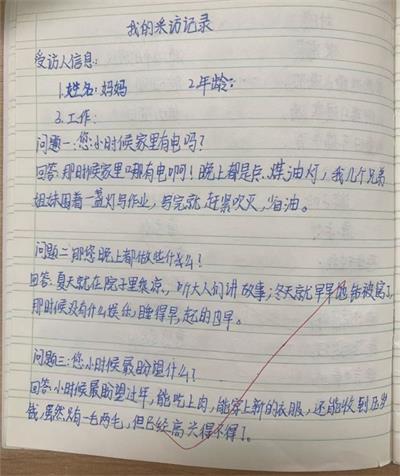 我的采访记录
受访人信息:
1.姓名:妈妈 2.年龄:
3.工作:
问题一:您小时候家里有电吗?
回答:那时候家里哪有电啊!晚上都是点煤油灯,我几个兄弟
姐妹围着一盏灯写作业,写完就赶紧吹灭,省油。
问题二:那您晚上都做些什么?
回答:夏天就在院子里乘凉,听大人们讲故事;冬天就早早地钻被窝了,
那时候没有什么娱乐,睡得早,起的也早。
问题三:您小时候最盼望什么?
回答:小时候最盼望过年,能吃上肉,能穿上新的衣服,还能收到压岁
钱,虽然只有一毛两毛,但已经高兴得不得了。